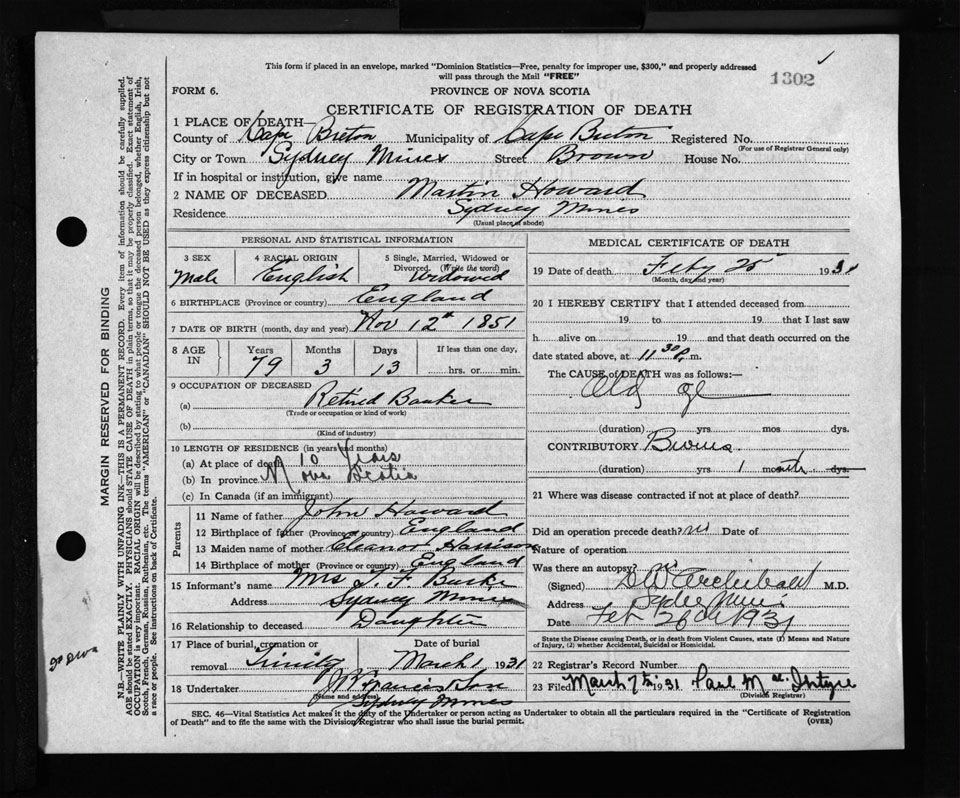 This form if placed in an envelope, marked "Dominion Statistics—Free, penalty for improper use, $300," and properly addressed
will pass through the Mail "FREE"
1302
FORM 6.
PROVINCE OF NOVA SCOTIA
CERTIFICATE OF REGISTRATION OF DEATH
1 PLACE OF DEATH—
County of Cape Breton Municipality of Cape Breton Registered No.
(For use of Registrar General only)
City or Town Sydney Mines Street Brown House No.
If in hospital or institution, give name
2 NAME OF DECEASED Martin Howard
Residence Sydney Mines
(Usual place of abode)
PERSONAL AND STATISTICAL INFORMATION
3 SEX
Male
4 RACIAL ORIGIN
English
5 Single, Married, Widowed or
Divorced. (Write the word)
Widowed
6 BIRTHPLACE (Province or country) England
7 DATE OF BIRTH (month, day and year) Nov 12th 1851
8 AGE IN
Years Months Days If less than one day,
79 3 13 hrs. or min.
9 OCCUPATION OF DECEASED
(a) Retired Banker
(Trade or occupation or kind of work)
(b)
(Kind of industry)
10 LENGTH OF RESIDENCE (in years and months)
(a) At place of death 10 Years
(b) In province Nova Scotia
(c) In Canada (if an immigrant)
Parents
11 Name of father John Howard
12 Birthplace of father (Province or country) England
13 Maiden name of mother Eleanor Harrison
14 Birthplace of mother (Province or country) England
15 Informant's name Mrs F. Burke
Address Sydney Mines
16 Relationship to deceased Daughter
17 Place of burial, cremation or Date of burial
removal Trinity March 1 1931
18 Undertaker Francis & Son
(Name and address) Sydney Mines
MEDICAL CERTIFICATE OF DEATH
19 Date of death Feby 25 1931
(Month, day and year)
20 I HEREBY CERTIFY that I attended deceased from
19 to 19 that I last saw
h alive on 19 and that death occurred on the
date stated above, at 11.30 P. m.
The CAUSE of DEATH was as follows:—
Old age
(duration) yrs mos dys.
CONTRIBUTORY
(duration) yrs 1 month dys.
21 Where was disease contracted if not at place of death?
Did an operation precede death? no Date of
Nature of operation
Was there an autopsy? no
(Signed) Archibald M.D.
Address Sydney Mines
Date Feb 26th 1931
State the Disease causing Death, or in death from Violent Causes, state (1) Means and Nature
of Injury, (2) whether Accidental, Suicidal or Homicidal.
22 Registrar's Record Number
23 Filed March 7th, 1931 Paul McIntyre
(Division Registrar)
SEC. 46—Vital Statistics Act makes it the duty of the Undertaker or person acting as Undertaker to obtain all the particulars required in the "Certificate of Registration
of Death" and to file the same with the Division Registrar who shall issue the burial permit. (OVER)
MARGIN RESERVED FOR BINDING
N.B.—WRITE PLAINLY WITH UNFADING INK—THIS IS A PERMANENT RECORD. Every item of information should be carefully supplied.
AGE should be stated EXACTLY. PHYSICIANS should STATE CAUSE OF DEATH in plain terms, so that it may be properly classified. Exact statement of
OCCUPATION is very important. RACIAL ORIGIN will be described by stating to what people or tongue the deceased person belonged, whether English, Irish,
Scotch, French, German, Russian, Ruthenian, etc. The terms "AMERICAN" or "CANADIAN" SHOULD NOT BE USED as they express citizenship but not
a race or people. See instructions on back of Certificate.